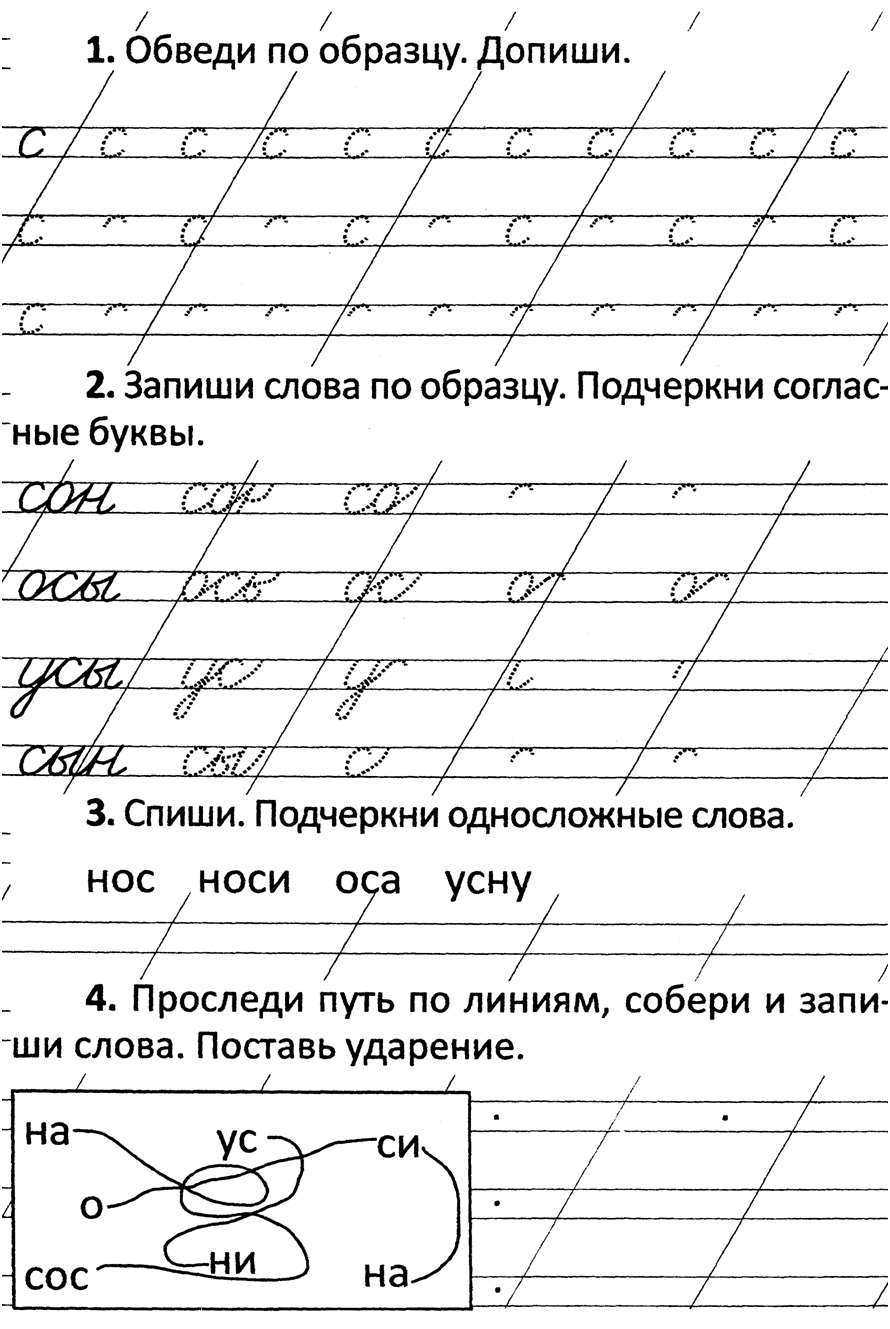 1. Обведи по образцу. Допиши.
с с с с с с с с с с с
с с с с с с
с
2. Запиши слова по образцу. Подчеркни соглас-
ные буквы.
сон со со
осы ось ос о о
усы ус у
сын сы с
3. Спиши. Подчеркни односложные слова.
нос носи оса усну
4. Проследи путь по линиям, собери и запи-
ши слова. Поставь ударение.
на ус си
о
сос ни на